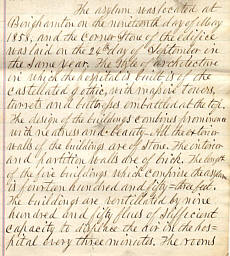 The asylum was located at
Binghamton on the nineteenth day of May
1858, and the corner stone of the edifice
was laid on the 24th day of September in
the same year. The style of architecture
in which the hospital is built is of the
castellated gothic, with massive towers,
turrets and buttresses embattled at the top.
The design of the buildings combines prominence
with neatness and beauty - All the exterior
walls of the buildings are of stone. The interior
and partition walls are of brick. The length
of the five buildings which comprise the asylum
is fourteen hundred and fifty = three feet.
The buildings are ventillated by nine
hundred and fifty flues of sufficient
capacity to displace the air in the hos=
pital every three minutes. The rooms